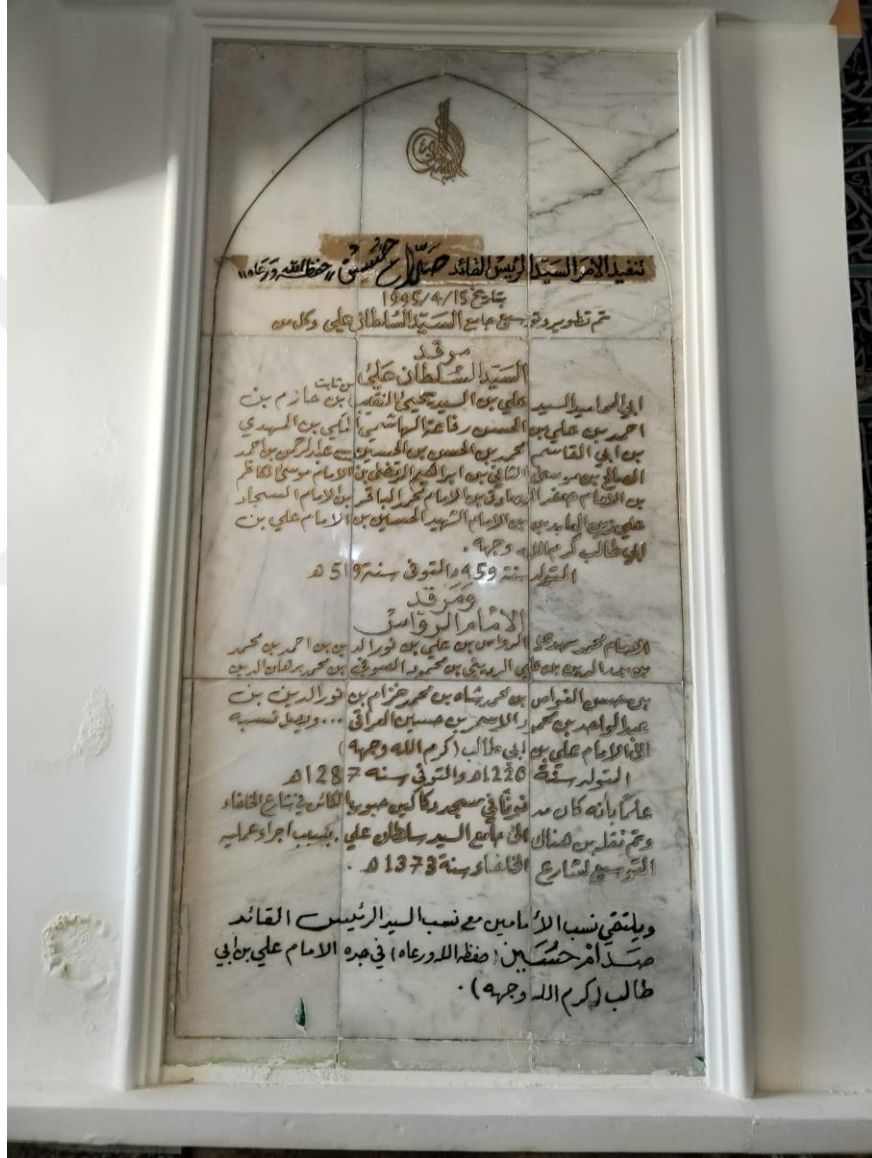 تنفيذ الأمر السيد الرئيس القائد صدام حسين «حفظه الله ورعاه»
بتاريخ 1995/4/15
تم تطوير وتوسيع جامع السيد السلطان علي وكل من
مرقد
السيد السلطان علي
ابي المحاميد السيد علي بن السيد يحيى النقيب بن ثابت بن حازم بن
احمد بن علي بن الحسن رفاعة الهاشمي المكي بن المهدي
بن ابي القاسم محمد بن الحسن بن الحسين بن عبد الرحمن بن احمد
الصالح بن موسى الثاني بن ابراهيم المرتضى بن الامام موسى الكاظم
بن الامام جعفر الصادق بن الامام محمد الباقر بن الامام السجاد
علي زين العابدين بن الامام الشهيد الحسين بن الامام علي بن
ابي طالب كرم الله وجهه .
المتولد سنة 459 والمتوفى سنة 519 هـ
ومرقد
الامام الرواس
الامام محمد مهدي الرواس بن علي بن نور الدين بن احمد بن محمد
بن بدر الدين بن علي الرديني بن محمود الصوفي بن محمد برهان الدين
بن حسن الغواس بن محمد شاه بن محمد خزام بن نور الدين بن
عبد الواحد بن محمود الاسمر بن حسين العراقي ... ويصل نسبه
الى الامام علي بن ابي طالب (كرم الله وجهه)
المتولد سنة 1220هـ والمتوفى سنة 1287هـ
علماً بأنه كان مدفوناً في مسجد دكاكين حبوب الكائن في شارع الخلفاء
وتم نقله من هناك الى جامع السيد سلطان علي . بسبب اجراء عملية
التوسيع لشارع الخلفاء سنة 1373هـ .
ويلتقي نسب الأمامين مع نسب السيد الرئيس القائد
صدام حسين (حفظه الله ورعاه) في جده الامام علي بن ابي
طالب (كرم الله وجهه) .